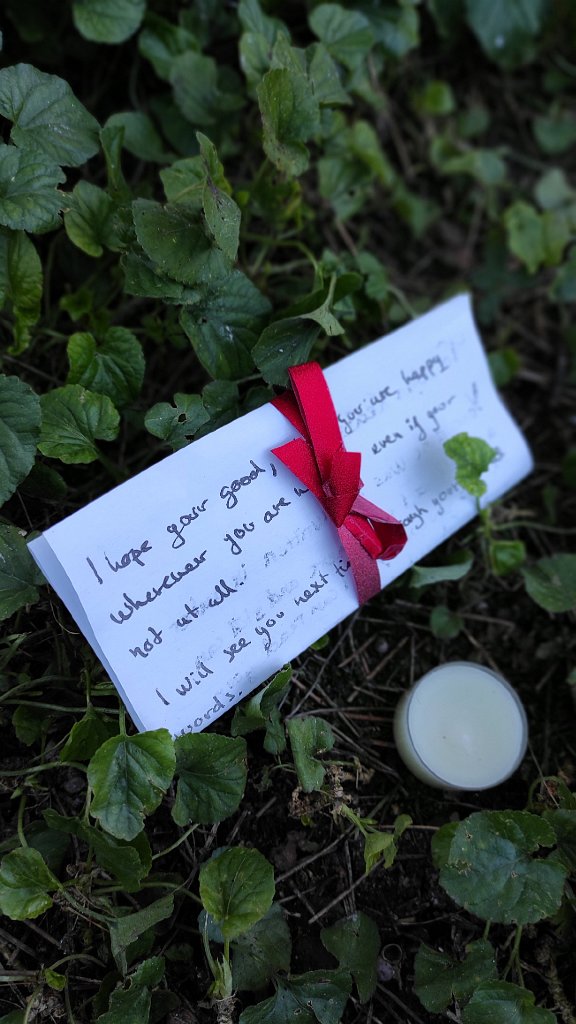 I hope your good, you are happy
wherever you are even if your
not at all.
I will see you next
words.